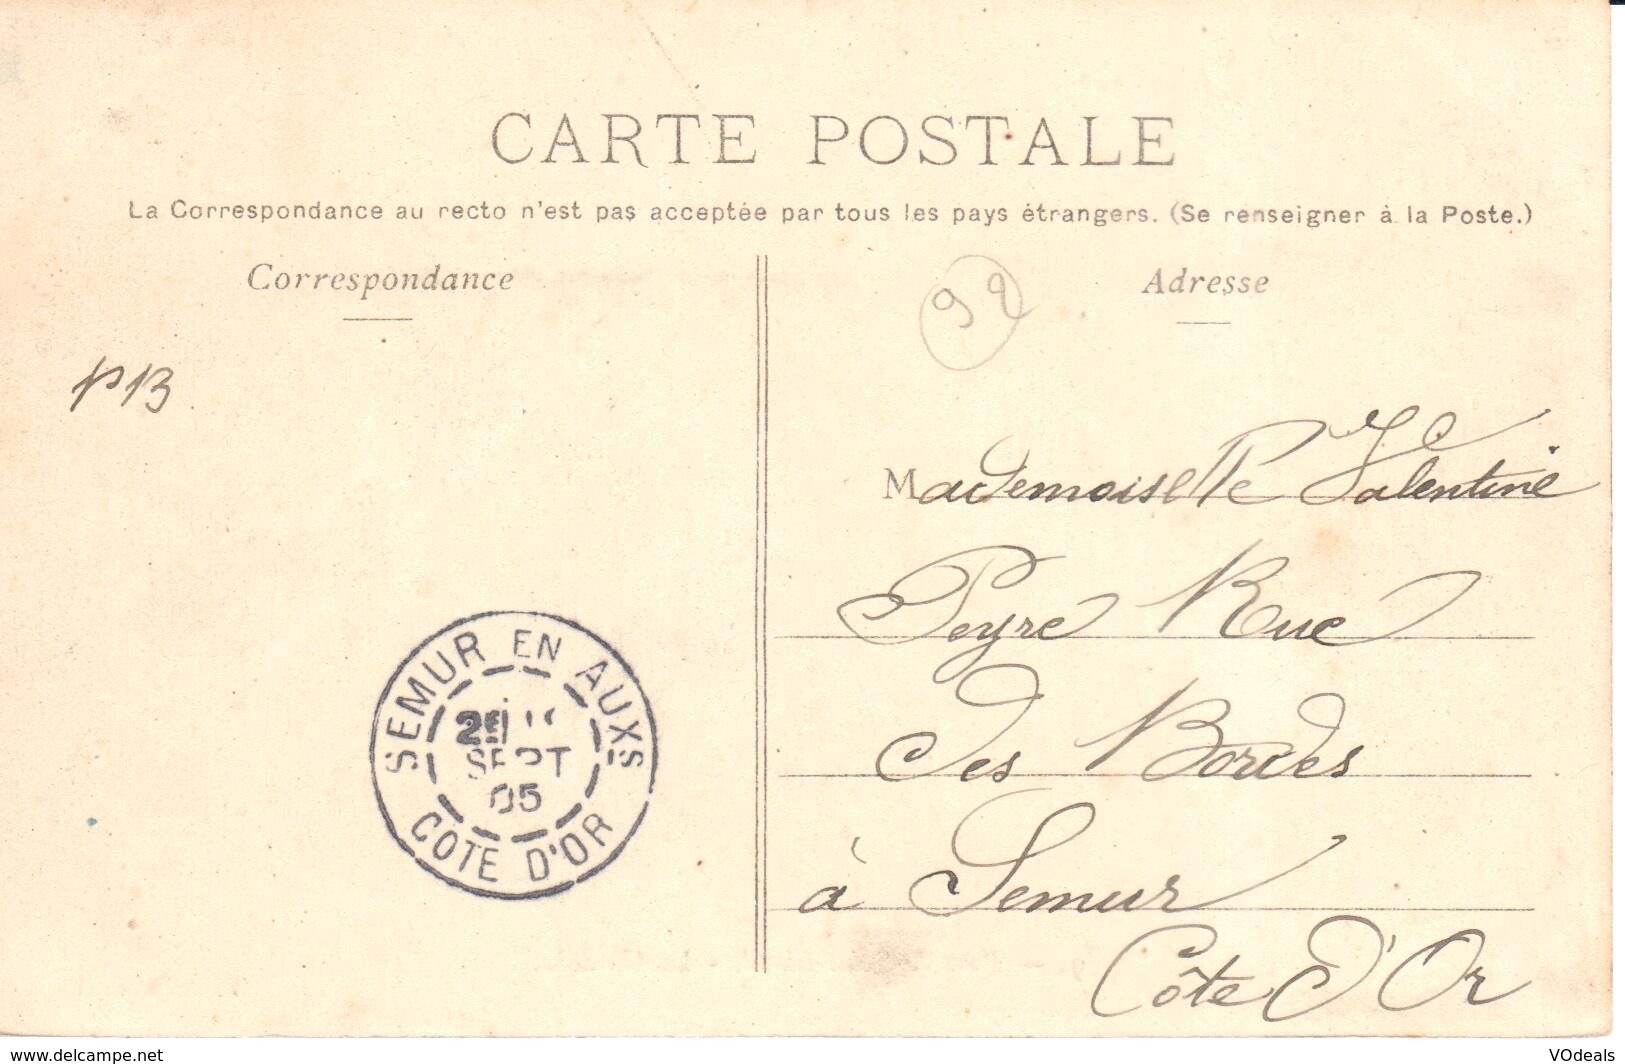 CARTE POSTALE
La Correspondance au recto n'est pas acceptée par tous les pays étrangers. (Se renseigner à la Poste.)
Correspondance
Adresse
92
PB
Mademoiselle Valentine
Peyre Rue
des Bordes
à Semur
Côte d'Or
SEMUR EN AUXS
SEPT
05
COTE D'OR
www.delcampe.net
VOdeals